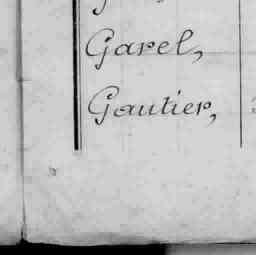 Garel,
Gautier,